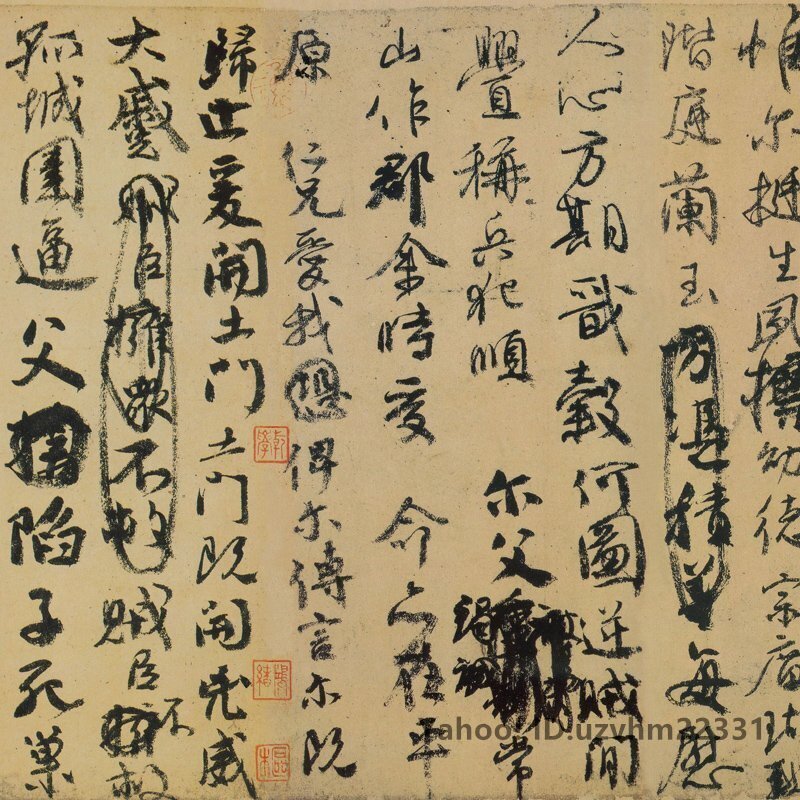 惟爾挺生夙標幼德宗廟瑚璉
階庭蘭玉方憑積善每慰
人心方期戩穀何圖逆賊間
釁稱兵犯順爾父竭誠常
山作郡余時受命亦在平
原仁兄愛我恐俾爾傳言爾既
歸止爰開土門土門既開凶威
大蹙賊臣擁衆不救賊臣不救
孤城圍逼父陷子死巢
Yahoo, ID:uzvhm22331